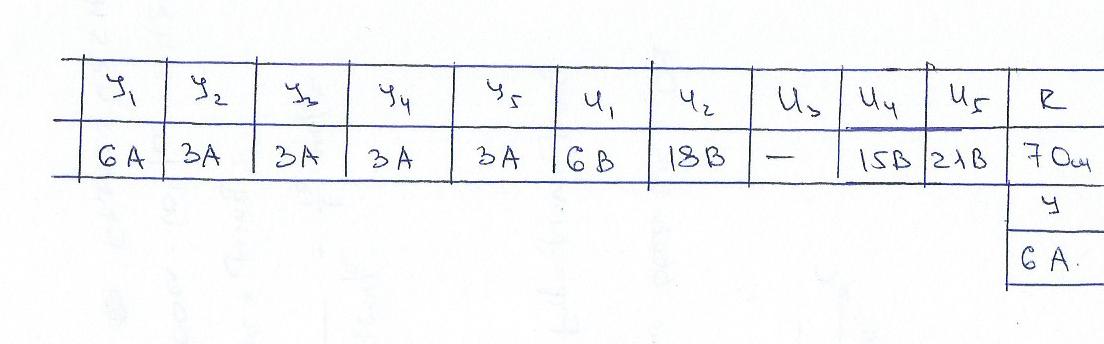 У₁ У₂ У₃ У₄ У₅ U₁ U₂ U₃ U₄ U₅ R
6 А 3А 3А 3А 3А 6 В 18В — 15В 21В 7 Ом
У
6 А.